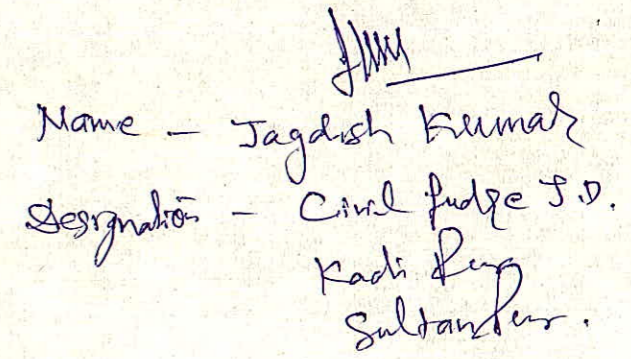 Name - Jagdish Kumar
Designation - Civil Judge J.D.
Kadi Pur
Sultanpur.